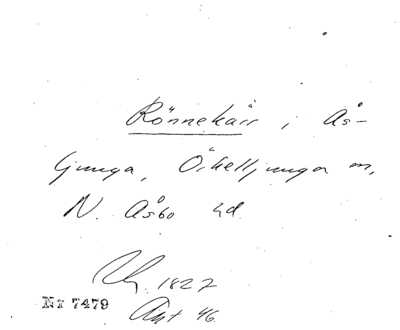 Rönnekärr i Ås-
ljunga, Örkelljunga sn,
N. Åsbo hd
1827
Nr 7479
46